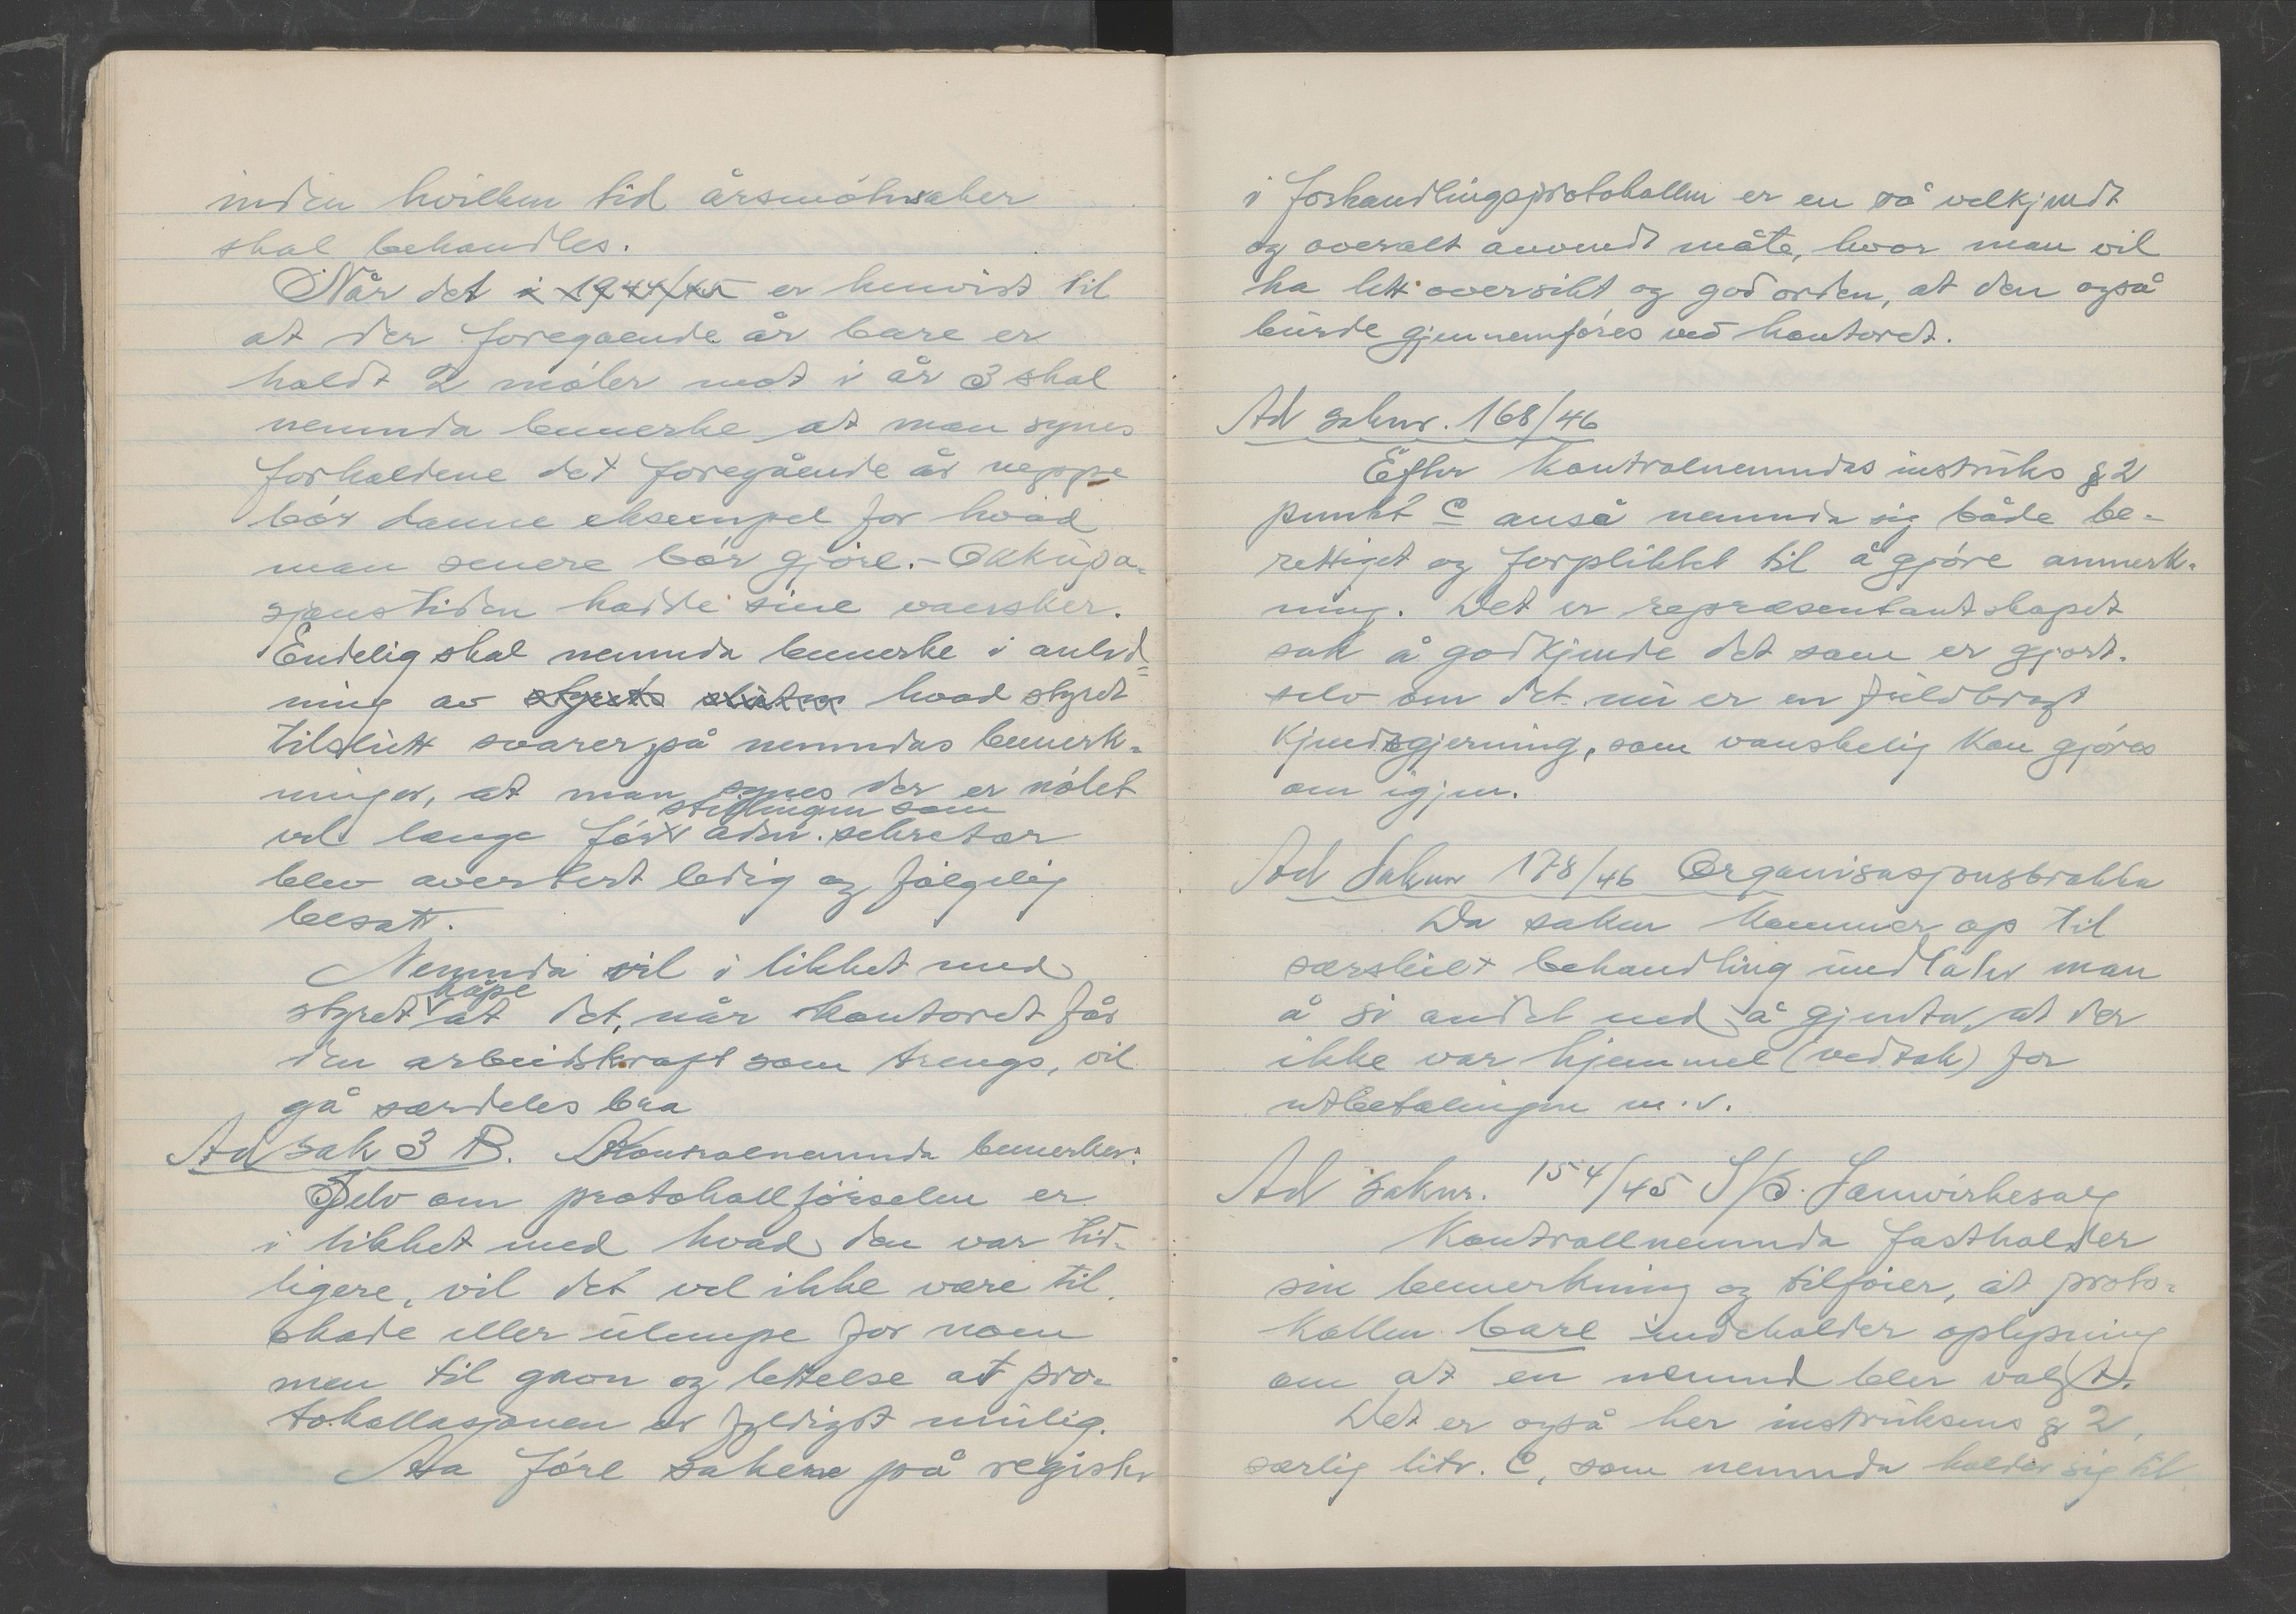 inden hvilken tid årsmøtesaker
skal behandles.
Når det i 1944/45 er henvist til
at der foregaende år bare er
holdt 2 møter mot i år 3 skal
nemnda bemerke at man synes
forholdene det foregående år neppe
bør danne eksempel for hvad
man senere bør gjøre. - Okkupa-
sjonstiden hadde sine vansker.
Endelig skal nemnda bemerke i anled-
ning av styrets hvad styret
tilslutt svarer på nemndas bemerk-
ninger, at man synes der er nølet
vel lenge før stillingen som adm. sekretær
blev avertert ledig og følgelig
besatt.
Nemnda vil i likhet med
styret håpe at det, når kontoret får
den arbeidskraft som trengs, vil
gå særdeles bra
Ad sak 3 B. Kontrolnemnda bemerker:
Selv om protokollførselen er
i likhet med hvad den var tid-
ligere, vil det vel ikke være til
skade eller ulempe for noen
men til gavn og lettelse at pro-
tokollasjonen er fyldigst mulig.
Aa føre sakene på register
i forhandlingsprotokollen er en så velkjendt
og overalt anvendt måte, hvor man vil
ha lett oversikt og god orden, at den også
burde gjennemføres ved kontoret.
Ad saknr. 168/46
Efter kontrolnemndas instruks § 2
punkt c anså nemnda sig både be-
rettiget og forpliktet til å gjøre anmerk-
ning. Det er representantskapet
sak å godkjende det som er gjort.
selv om det nu er en fuldbragt
kjendsgjerning, som vanskelig kan gjøres
om igjen.
Ad Saknr 178/46 Organisasjonsbrakka
Da saken kommer op til
særskilt behandling undlater man
å si andet end å gjenta, at der
ikke var hjemmel (vedtak) for
utbetalingen m.v.
Ad saknr. 154/45 S/S. Samvirkesalg
Kontrollnemnda fastholder
sin bemerkning og tilføier, at proto-
kollen bare indeholder oplysning
om at en nemnd blev valgt.
Det er også her instruksens § 2,
særlig litr. C, som nemnda holder sig til